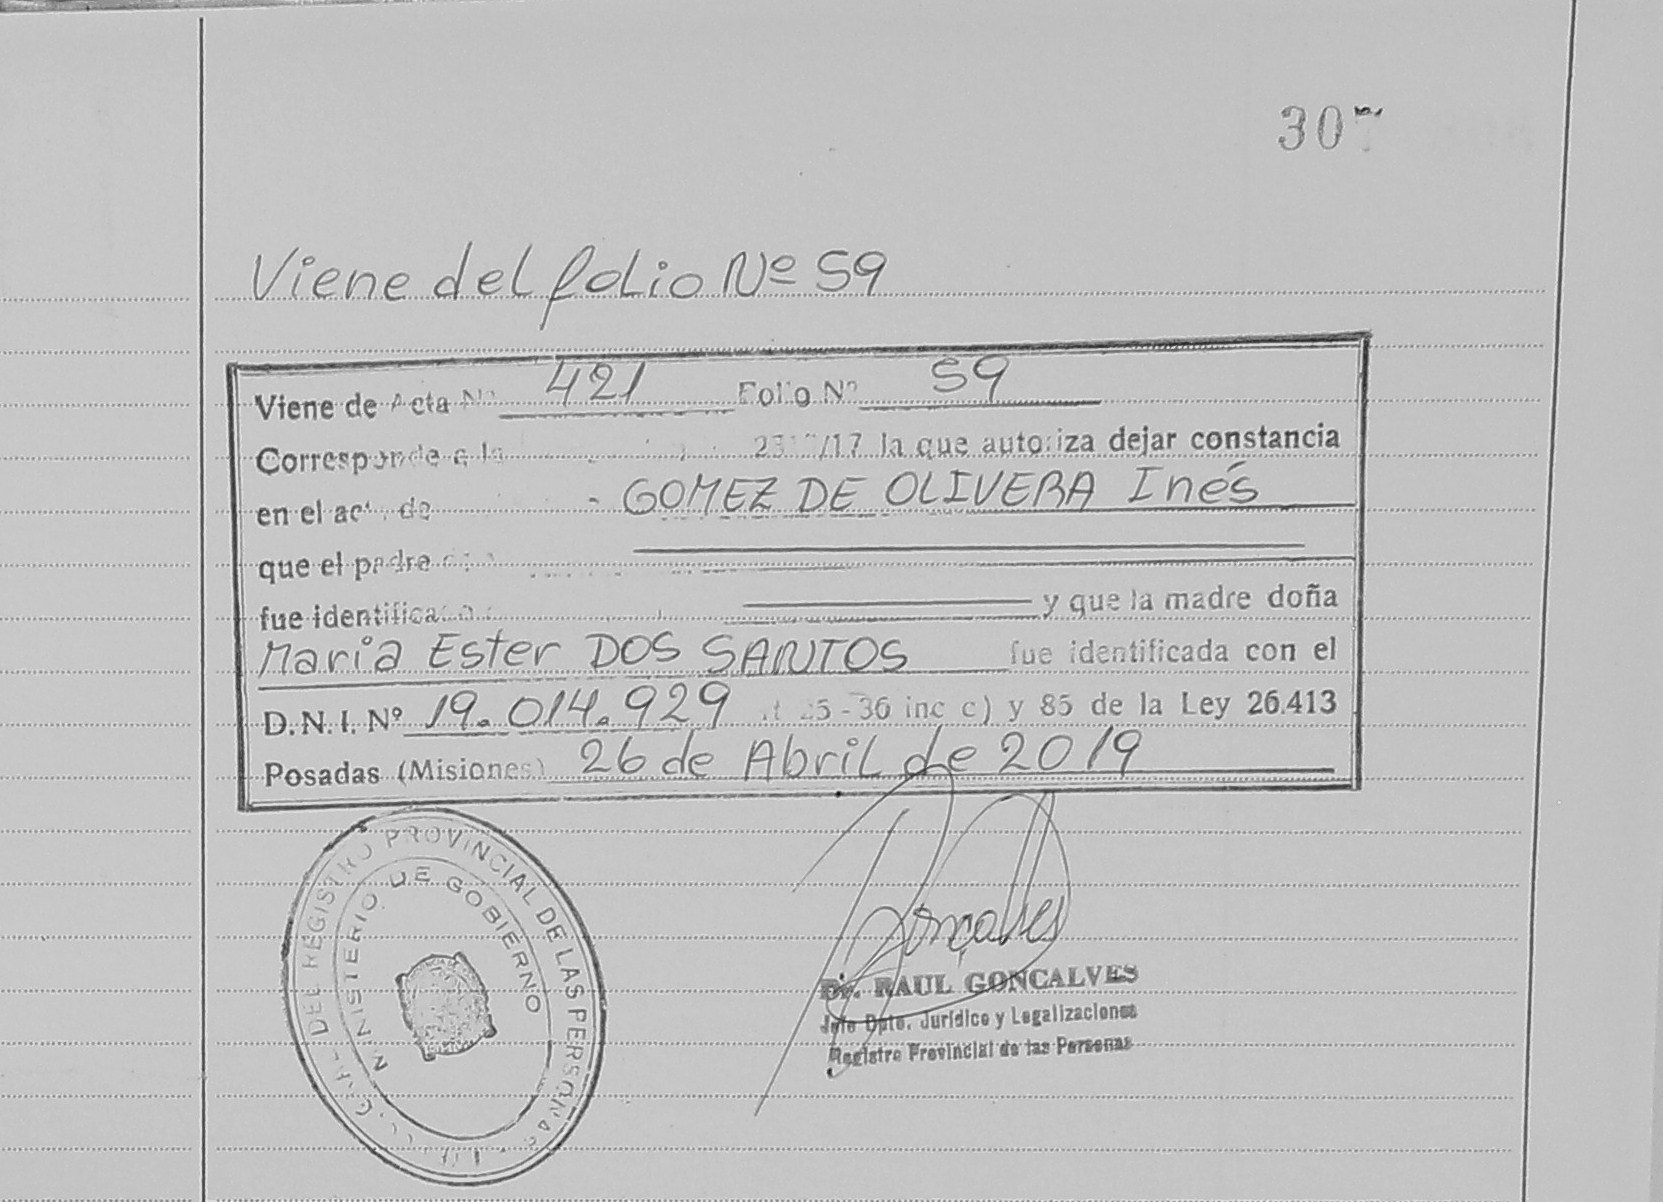 307
Viene del folio Nº 59
Viene de Acta Nº 421 Folio Nº 59
Corresponde a la /17 la que autoriza dejar constancia
en el acta de - GOMEZ DE OLIVERA Inés
que el padre
fue identificado y que la madre doña
Maria Ester DOS SANTOS fue identificada con el
D.N.I. Nº 19.014.929 -36 inc c) y 85 de la Ley 26.413
Posadas (Misiones) 26 de Abril de 2019
DEL REGISTRO PROVINCIAL DE LAS PERSONAS
MINISTERIO DE GOBIERNO
Gonçalves
Dr. RAUL GONCALVES
Jefe Dpto. Jurídico y Legalizaciones
Registro Provincial de las Personas